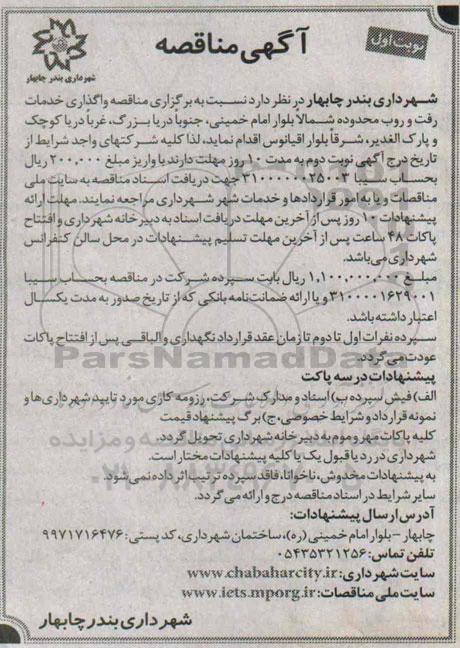 نوبت اول
آگهی مناقصه
شهرداری بندر چابهار
شهرداری بندر چابهار در نظر دارد نسبت به برگزاری مناقصه واگذاری خدمات
رفت و روب محدوده شمالاً بلوار امام خمینی، جنوباً دریا بزرگ، غرباً دریا کوچک
و پارک الغدیر، شرقاً بلوار اقیانوس اقدام نماید، لذا کلیه شرکتهای واجد شرایط از
تاریخ درج آگهی نوبت دوم به مدت ۱۰ روز مهلت دارند با واریز مبلغ ۲۰۰,۰۰۰ ریال
بحساب سیبا جهت دریافت اسناد مناقصه به سایت ملی
مناقصات و یا به امور قراردادها و خدمات شهر شهرداری مراجعه نمایند. مهلت ارائه
پیشنهادات ۱۰ روز پس از آخرین مهلت دریافت اسناد به دبیرخانه شهرداری و افتتاح
پاکات ۴۸ ساعت پس از آخرین مهلت تسلیم پیشنهادات در محل سالن کنفرانس
شهرداری می‌باشد.
مبلغ ۱,۱۰۰,۰۰۰,۰۰۰ ریال بابت سپرده شرکت در مناقصه بحساب سیبا
۳۱۰۰۰۰۱۶۲۹۰۰۱ و یا ارائه ضمانت‌نامه بانکی که از تاریخ صدور به مدت یکسال
اعتبار داشته باشد.
سپرده نفرات اول تا دوم تا زمان عقد قرارداد نگهداری و الباقی پس از افتتاح پاکات
عودت می‌گردد.
پیشنهادات در سه پاکت
الف) فیش سپرده ب) اسناد و مدارک شرکت، رزومه کاری مورد تایید شهرداری‌ها و
نمونه قرارداد و شرایط خصوصی، ج) برگ پیشنهاد قیمت
کلیه پاکات مهر و موم به دبیرخانه شهرداری تحویل گردد.
شهرداری در رد یا قبول یک یا کلیه پیشنهادات مختار است.
به پیشنهادات مخدوش، ناخوانا، فاقد سپرده ترتیب اثر داده نمی‌شود.
سایر شرایط در اسناد مناقصه درج و ارائه می‌گردد.
آدرس ارسال پیشنهادات:
چابهار – بلوار امام خمینی (ره)، ساختمان شهرداری، کد پستی: ۹۹۷۱۷۱۶۴۷۶
تلفن تماس: ۰۵۴۳۵۳۲۱۲۵۶
سایت شهرداری: www.chabaharcity.ir
سایت ملی مناقصات: www.iets.mporg.ir
شهرداری بندر چابهار
ParsNamadData